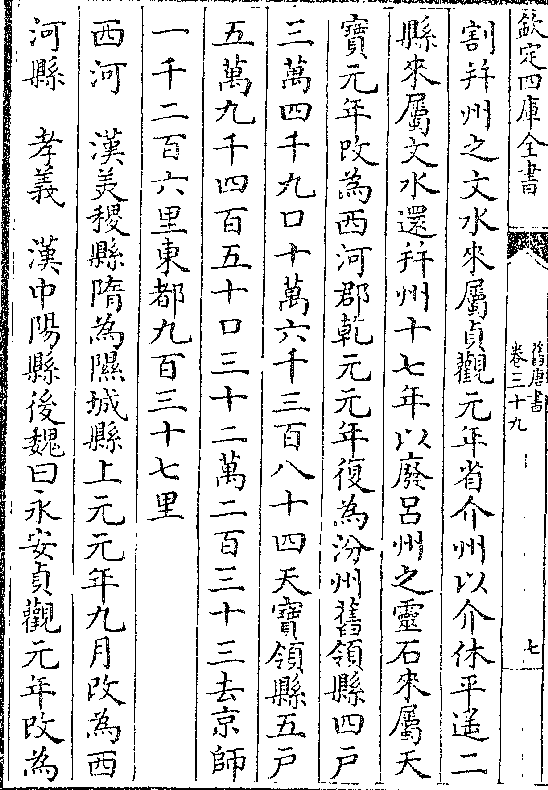 欽定四庫全書
舊唐書
卷三十九
七
割幷州之文水來屬貞觀元年省介州以介休平遥二
縣來屬文水還幷州十七年以廢吕州之靈石來屬天
寶元年改為西河郡乾元元年復為汾州舊領縣四户
三萬四千九口十萬六千三百八十四天寶領縣五户
五萬九千四百五十口三十二萬二百三十三去京師
一千二百六里東都九百三十七里
西河　漢羙稷縣隋為隰城縣上元元年九月改為西
河縣　孝義　漢中陽縣後魏曰永安貞觀元年改為